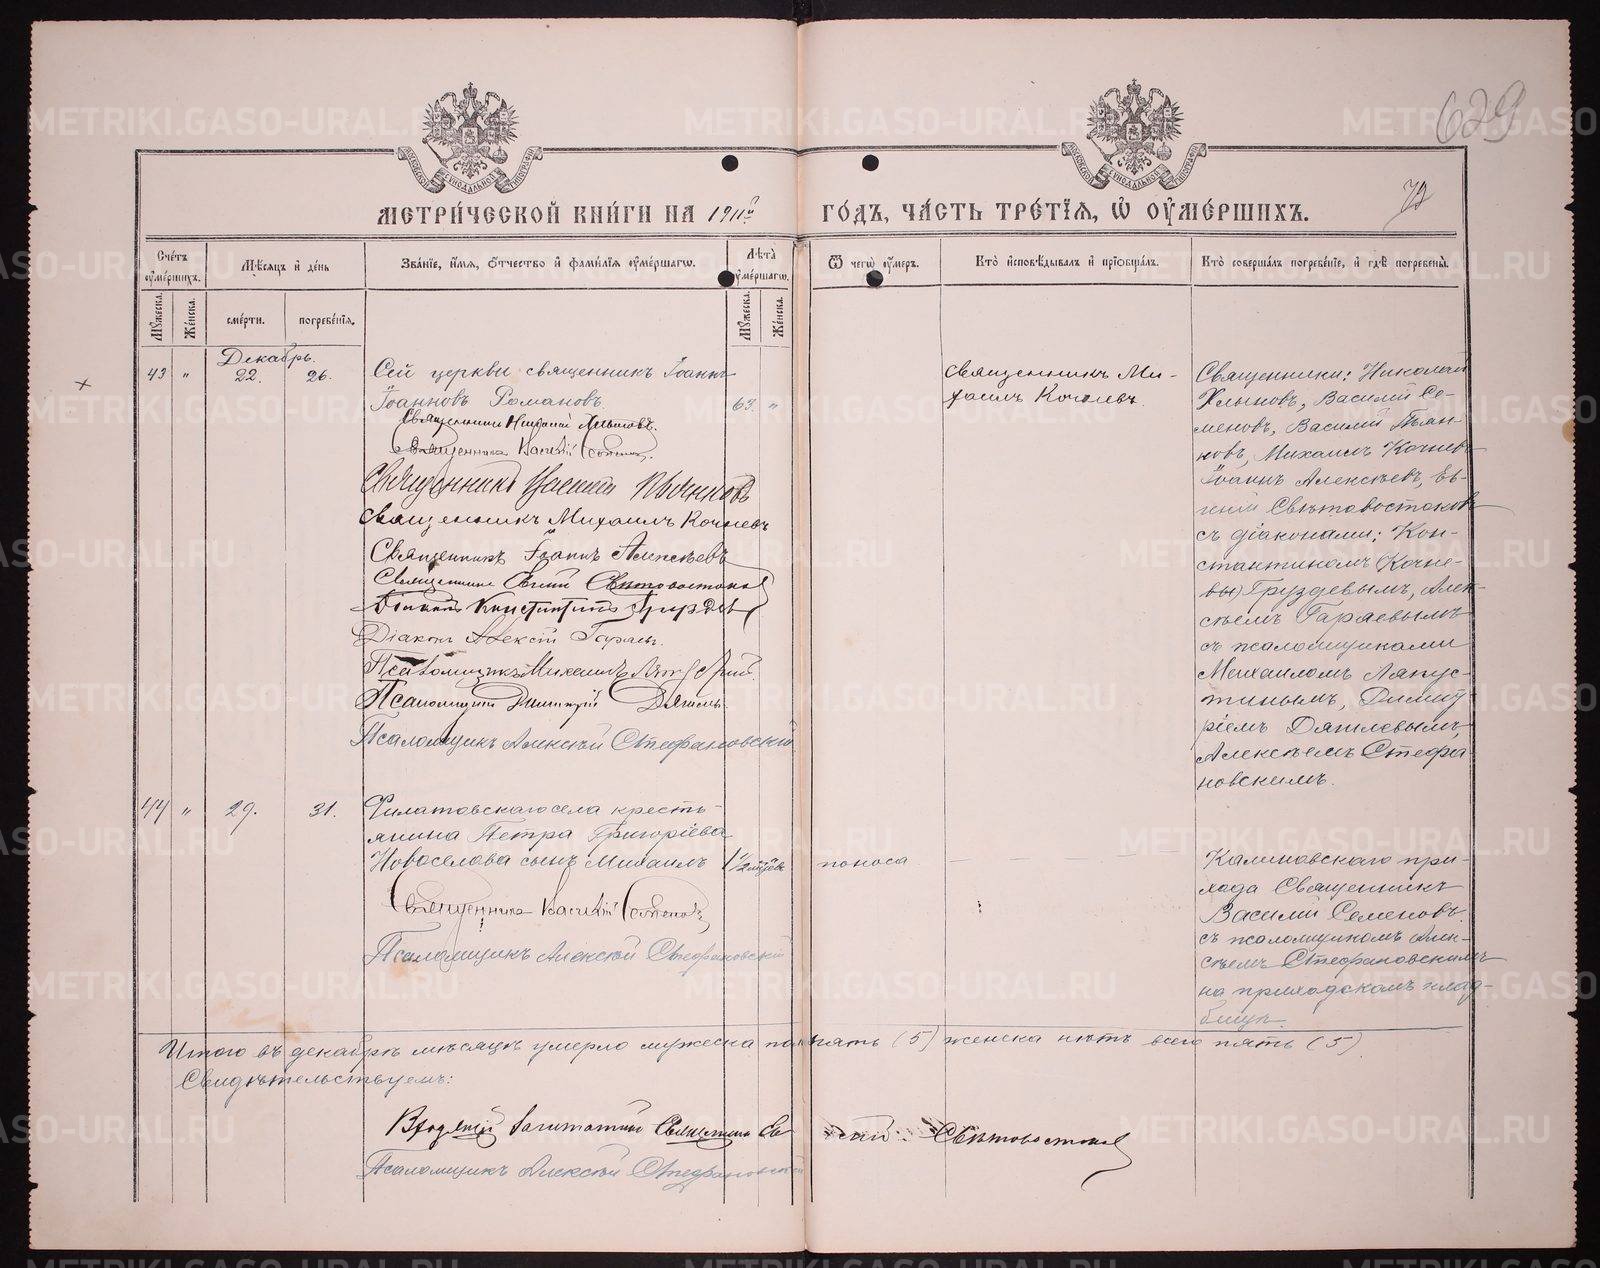 629
72
МЕТРИ́ЧЕСКОЙ КНИ́ГИ НА 1911й
ГО́ДЪ, ЧА́СТЬ ТРЕ́ТІЯ, Ѡ ОУМЕ́РШИХЪ.
Сче́тъ оуме́ршихъ.
Мѣсяцъ и де́нь
Зва́ніе, и́мя, о́тчество и фами́лія оуме́ршагѡ.
Лѣта̀ оуме́ршагѡ.
Ѿ чегѡ̀ оу́меръ.
Кто̀ исповѣ́дывалъ и пріобща́лъ.
Кто̀ соверша́лъ погребе́ніе, и гдѣ̀ погребены̀.
Му́жеска.
Же́нска.
сме́рти.
погребе́нія.
Му́жеска.
Же́нска.
Декабрь.
43 " 22. 26.
Сей церкви священникъ Іоаннъ
Іоанновъ Романовъ. 63. "
Священникъ Николай Хлыновъ.
Священникъ Василій Семеновъ.
Священникъ Василій Пьянковъ
Священникъ Михаилъ Кочневъ
Священникъ Іоаннъ Алексѣевъ
Священникъ Евгеній Свѣтовостоковъ
Діаконъ Константинъ Груздевъ
Діаконъ Алексій Гаряевъ.
Псаломщикъ Михаилъ
Псаломщикъ Димитрій Дягилевъ
Псаломщикъ Алексѣй Стефановскій
Священникъ Ми-
хаилъ Кочневъ.
Священники: Николай
Хлыновъ, Василій Се-
меновъ, Василій Пьян-
ковъ, Михаилъ Кочневъ
Іоаннъ Алексѣевъ, Ев-
геній Свѣтовостоковъ
съ діаконами: Кон-
стантиномъ (Кочне-
вы) Груздевымъ, Алек-
сѣемъ Гаряевымъ
съ псаломщиками
Михаиломъ Лапус-
тинымъ, Димит-
ріемъ Дягилевымъ,
Алексѣемъ Стефа-
новскимъ.
44 " 29. 31.
Филатовскаго села кресть-
янина Петра Григоріева
Новоселова сынъ Михаилъ 1 1/2 мѣсяц.
поноса
Священникъ Василій Семеновъ,
Псаломщикъ Алексѣй Стефановскій
Калиновскаго при-
хода Священникъ
Василій Семеновъ
съ псаломщикомъ Алек-
сѣемъ Стефановскимъ
на приходскомъ клад-
бищѣ.
Итого въ декабрѣ мѣсяцѣ умерло мужеска пола пять (5) женска нѣтъ всего пять (5).
Свидѣтельствуемъ:
Священникъ Евгеній Свѣтовостоковъ
Псаломщикъ Алексѣй Стефановскій
METRIKI.GASO-URAL.RU